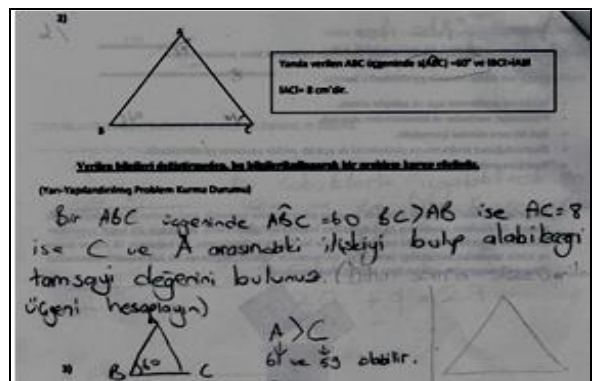 2)
A
B
C
Yanda verilen ABC üçgeninde s(ABC) =60° ve IBCI>IABI
IACI= 8 cm'dir.
Verilen bilgileri değiştirmeden, bu bilgileri kullanarak bir problem kurup çözünüz.
(Yarı-Yapılandırılmış Problem Kurma Durumu)
Bir ABC üçgeninde ABC =60 BC>AB ise AC=8
ise C ve A arasındaki ilişkiyi bulup alabileceği
tamsayı değerini bulunuz.
üçgeni hesaplayın)
A>C
61 ve 59 olabilir.
3)
B 60 C